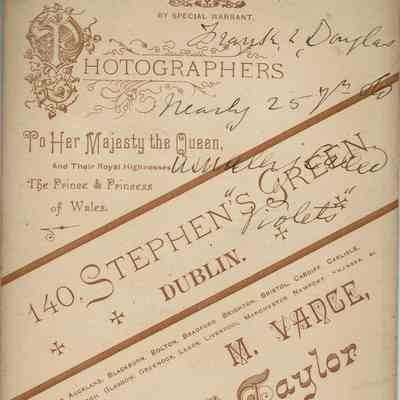 BY SPECIAL WARRANT.
Douglas
PHOTOGRAPHERS
nearly 25
To Her Majesty the Queen,
And Their Royal Highnesses
The Prince & Princess
of Wales.
"Violets"
140, STEPHEN'S GREEN
DUBLIN.
AUCKLAND, BLACKBURN, BOLTON, BRADFORD, BRIGHTON, BRISTOL, CARDIFF, CARLISLE,
GLASGOW, GREENOCK, LEEDS, LIVERPOOL, MANCHESTER, NEWPORT,
M. VANCE,
Taylor